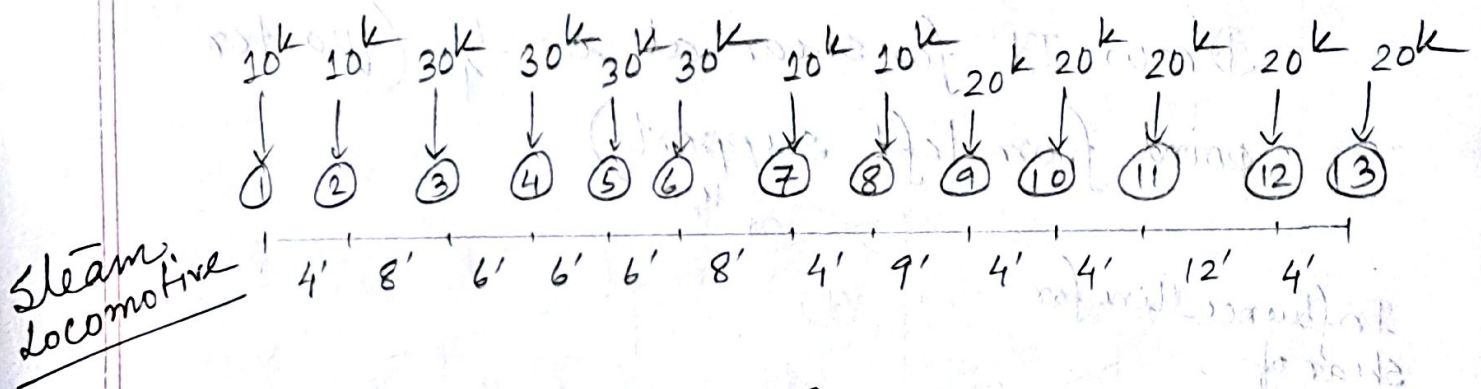 10k 10k 30k 30k 30k 30k 10k 10k 20k 20k 20k 20k 20k
1 2 3 4 5 6 7 8 9 10 11 12 13
Steam
Locomotive
4' 8' 6' 6' 6' 8' 4' 9' 4' 4' 12' 4'